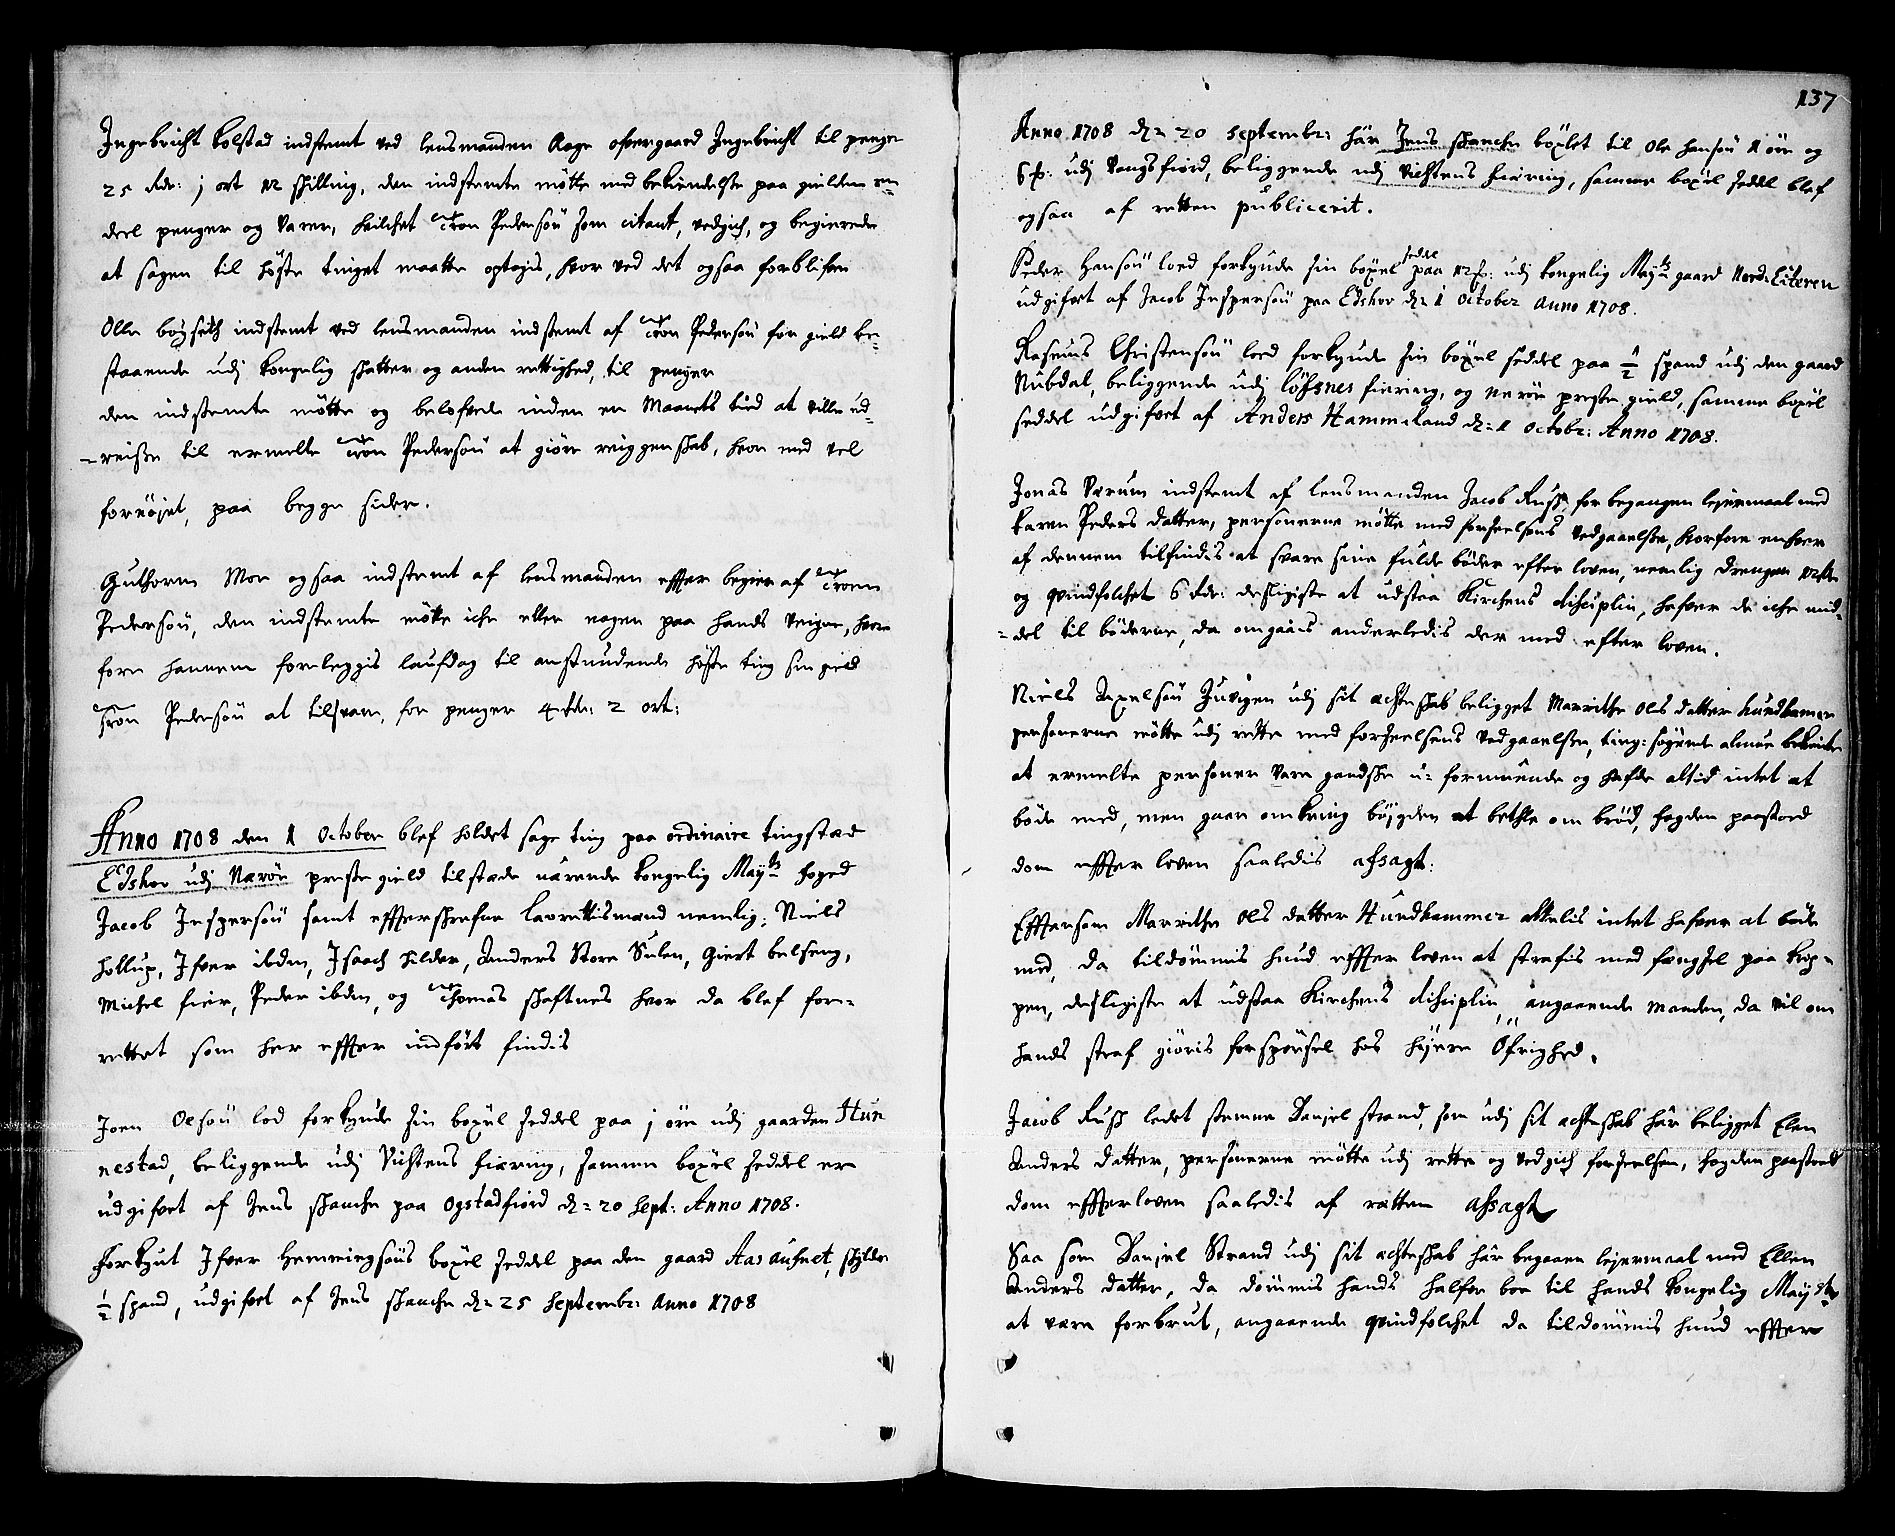 Ingebricht Kolstad indstemt ved lensmanden Aage ofvergaard Ingebricht til penger
25 rdr: j ort 12 skilling, den indstemte mötte med bekiendelse paa gielden en
deel penger og varer, hvilchet Tron Pedersön som citant, vedgich, og begierede
at sagen til höste tinget maatte optagis, hvor ved det ogsaa forblifver
Olle böyseth indstemt ved lensmanden indstemt af Tron Pedersön for gield be-
staaende udj kongelig skatter og anden rettighed, til penger
den indstemte mötte og belofvede inden en Maanets tid at ville ud-
-reisse til ermelte Tron Pedersön at giöre reiggenskab, hvor med vel
fornöjet, paa begge sider.
Guthorm Moe ogsaa indstemt af lensmanden effter begier af Tronn
Pedersön, den indstemte mötte iche eller nogen paa hands veigne, hvor
fore hannem foreleggis laufdag til anstundende höste ting sin gield
Tron Pedersön at tilsvare, for penger 4 rdr: 2 ort:
Anno 1708 den 1 October blef holdet sage ting paa ordinaire tingstæd
Edshov udj Nærön preste gield tilstæde værende kongelig Mayts foged
Jacob Jespersön samt effterskrefne laurettismænd nemlig: Niels
Hollup, Ifver ibden, Isach Hilder, Anders Store Sulen, Giert belseng,
Michel fier, Peder ibden, og Thomas skaftnes hvor da blef for-
rettet som her effter indfört findis
Joen Olsön lod forkynde sin boxel seddel paa j öre udj gaarden Hun
nestad, beliggende udj Vichtens fiering, samme boxel seddel er
udgifvet af Jens skanche paa Ogstadfiord d: 20 Sept: Anno 1708.
Forkynt Ifver Hemmingsöns boxel seddel paa den gaard Aasaunet, skylder
1/2 spand, udgifvet af Jens skanche d: 25 September Anno 1708
137
Anno 1708 d: 20 septembr: har Jens skanche böxlet til Ole Hansön 1 öre og
6 : udj Vongsfiord, beliggende udj Vichtens fiering, samme boxel seddel blef
ogsaa af retten publicerit.
Peder Hansön loed forkynde sin boxel seddel paa 12 : udj kongelig Mayts gaard Nord: Eiteren
udgifvet af Jacob Jespersön paa Edshov d: 1 October Anno 1708.
Rasmus Christensön loed forkynde sin böxel seddel paa 1/2 spand udj den gaard
Nubdal, beliggende udj löfsnes fiering, og Nærön preste gield, samme boxel
seddel udgifvet af Anders Hammeland d: 1 Octobr: Anno 1708.
Jonas Værum indstemt af lensmanden Jacob Russ, for begangen lejermaal med
Karen Peders datter, personerne mötte med forseelsens vedgaaelse, hvorfore enhver
af dennem tilfindis at svare sine fulde böder efter loven, nemlig drengen 12 rdr
og qvindfolchet 6 rdr: desligiste at udstaa Kirchens disciplin, hafver de iche mid-
-del til böderne, da omgaais anderledis der med efter loven.
Niels Axelsön Juvigen udj sit ächteskab beligget Marrithe Ols datter Hundhamer
personerne mötte udj rette med forseelsens vedgaaelse, ting: sögende almue bekiente
at ermelte personer vare gandske u-formuende og hafde altid intet at
böde med, men gaar omkring böygden at bethle om bröd, fogden paastoed
dom effter loven saaledis afsagt:
Effttersom Marrithe Ols datter Hundhammer aldelis intet hafver at böde
med, da tildömmis hund effter loven at strafis med fængsel paa krop-
pen, desligiste at udstaa Kirchens disciplin, angaaende manden, da vil om
hands straf giöris forspörsel hos höyere Öfrighed.
Jacob Russ ledet stemne Danjel strand, som udj sit achteskab har beligget Elen
Anders datter, personerne mötte udj rette og vedgich forseelsen, fogden paastoed
dom effter loven saaledis af retten afsagt
Saa som Danjel Strand udj sit achteskab har begaaen lejermaal med Ellen
Anders datter, da dömmis hands halfve boe til hands kongelig Mayst:
at være forbrut, angaaende qvindfolchet da tildömmis hund effter